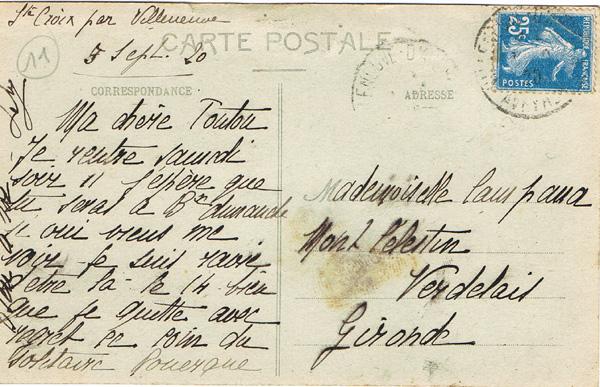 Ste Croix par Villeneuve
5 Sept. 20
11
CARTE POSTALE
CORRESPONDANCE
ADRESSE
25c
POSTES
REPUBLIQUE FRANÇAISE
AVEYRON
Ma chère Toutou
Je rentre samedi
soir 11 j'espère que
tu seras à Bx dimanche
si oui viens me
voir. Je suis ravie
d'être là le 14 bien
que je quitte avec
regret ce coin du
solitaire Rouergue
Mademoiselle Campana
Mont Célestin
Verdelais
Gironde